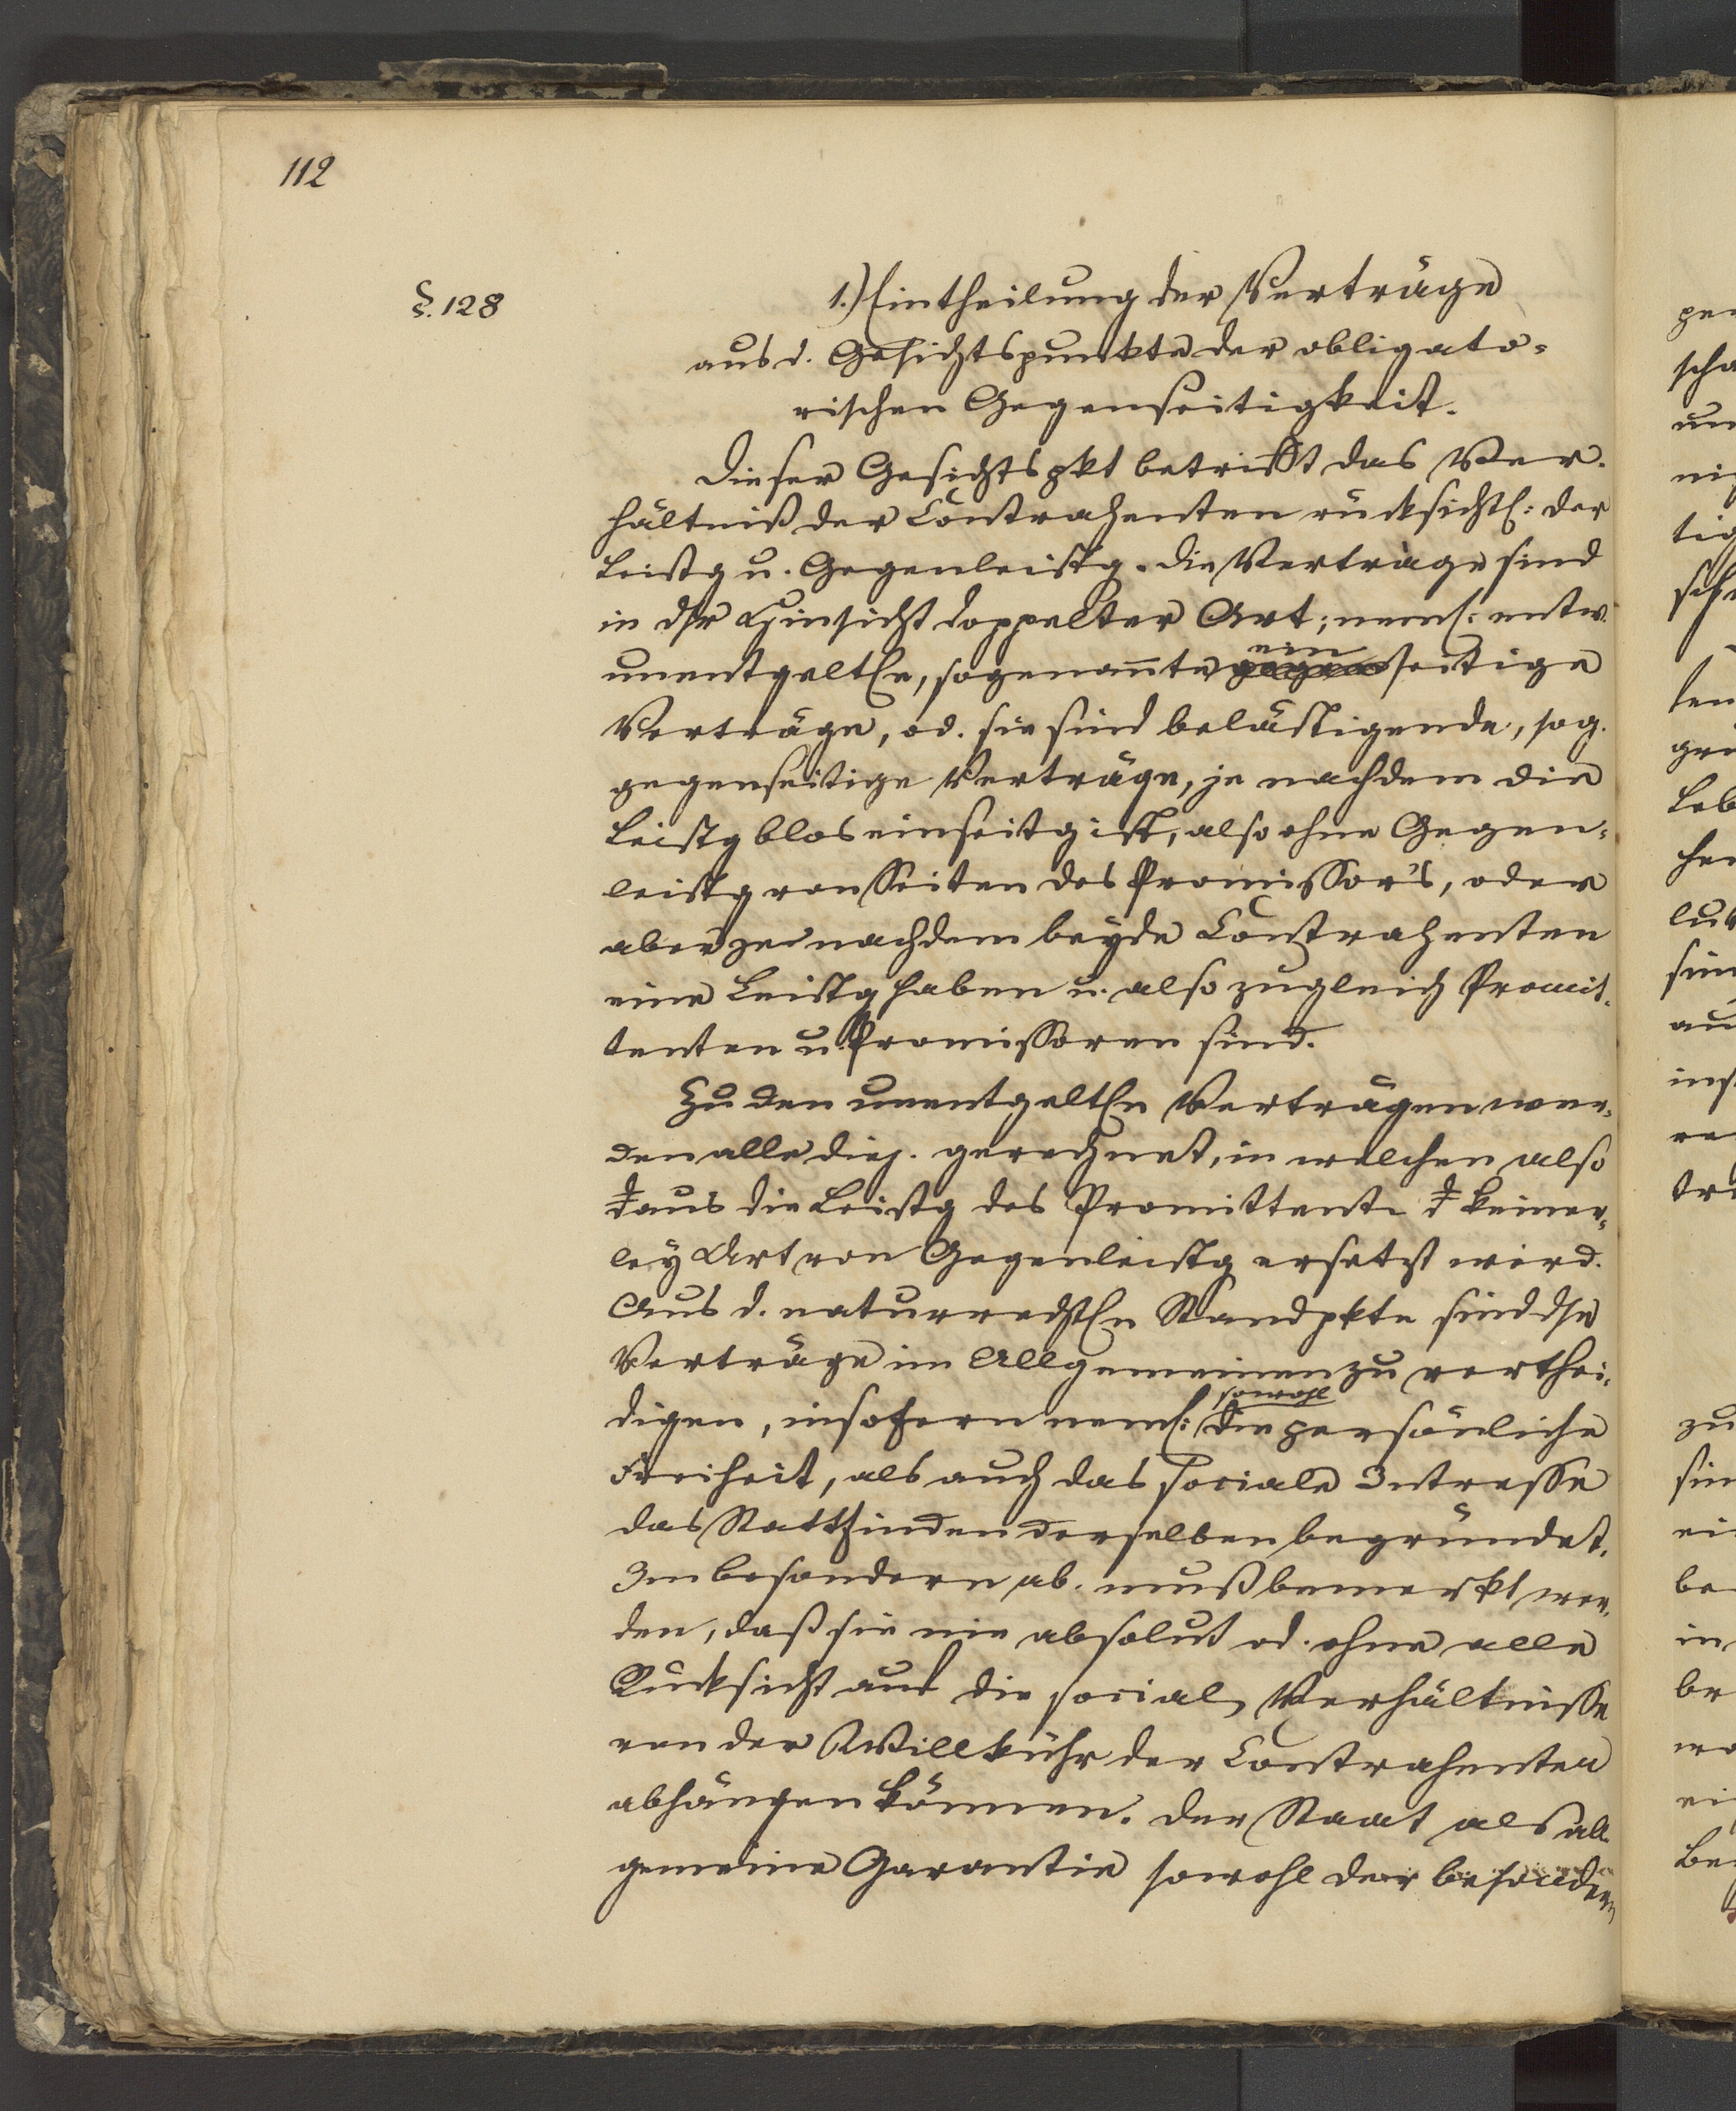 112
§. 128
1.) Eintheilung der Verträge
aus d. Gesichtspunkte der obligato-
rischen Gegenseitigkeit.
Dieser Gesichtspkt betrifft das Ver-
hältniß der Contrahenten rücksichtl: der
Leistg u. Gegenleistg. Die Verträge sind
in dsr Hinsicht doppelter Art; neml: entw.
ein
unentgeltln, sogenannte gegenseitige
Verträge, od. sie sind belästigende, sog.
gegenseitige Verträge, je nachdem die
Leistg blos einseitg ist, also ohne Gegen-
leistg von Seiten des Promissor's, oder
aber je nachdem beyde Contrahenten
eine Leistg haben u. also zugleich Promit-
tenten u. Promissoren sind.
Zu den unentgeltln Verträgen wer-
den alle diej. gerechnet, in welchen also
daus die Leistg des Promittent. d keiner-
ley Art von Gegenleistg ersetzt wird.
Aus d. naturrechtln Standpkte sind dse
Verträge im Allgemeinen zu verthei-
sowohl
digen, insofern neml: die persönliche
Freiheit, als auch das sociale Intresse
das Stattfinden derselben begründet.
Im besondern ab. muß bemerkt wer-
den, daß sie nie absolut od. ohne alle
Rücksicht auf die social. Verhältnisse
von der Willkühr der Contrahenten
abhängen können. Der Staat als all-
gemeine Garantie sowohl der besondern